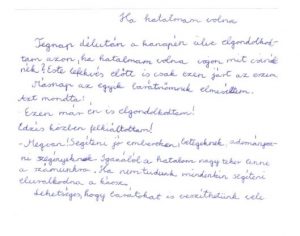 Ha hatalmam volna
Tegnap délután a kanapén ülve elgondolkod-
tam azon, ha hatalmam volna vajon mit csinál-
nék? Este lefekvés előtt is csak ezen járt az eszem.
Másnap az egyik barátnőmnek elmeséltem.
Azt mondta:
Ezen már én is elgondolkodtam!
Edzés közben felkiáltottam!
- Megvan! Segíteni jó embereken, betegeknek, adományoz-
ni szegényeknek. Igazából a hatalom nagy teher lenne
a számunkra. Ha nem tudunk mindenkin segíteni
eluralkodna a káosz.
Lehetséges, hogy barátokat is veszíthetünk vele